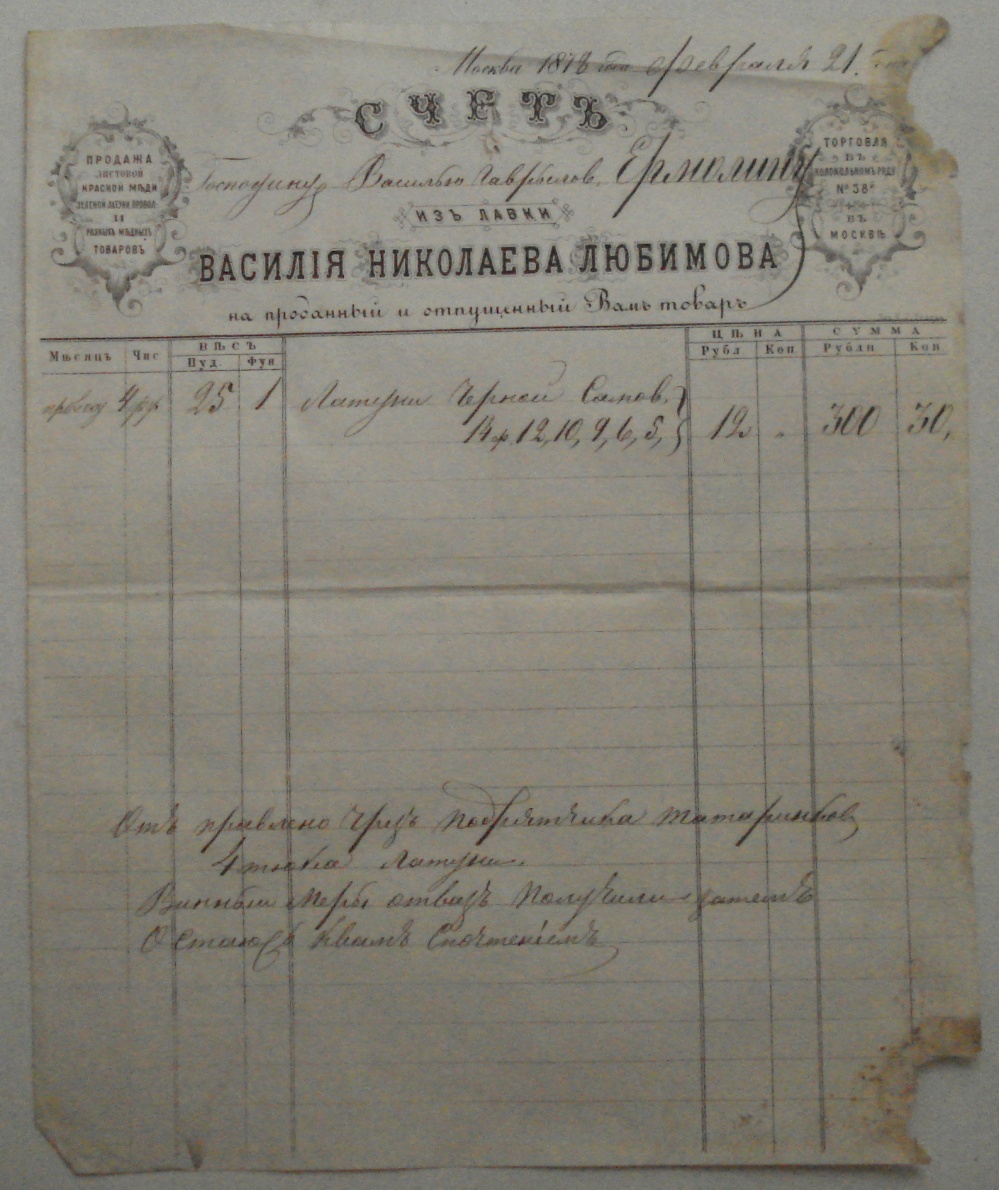 Москва 1878 года февраля 21 дня
СЧЕТЪ
ПРОДАЖА
ЛИСТОВОЙ
КРАСНОЙ МѢДИ
ЗЕЛЕНОЙ ЛАТУНИ ПРОВОЛ.
И
РАЗНЫХЪ МѢДНЫХЪ
ТОВАРОВЪ
ТОРГОВЛЯ
ВЪ
КОЛОКОЛЬНОМЪ РЯДУ
№ 38й
ВЪ
МОСКВѢ
Господину Василью Гаврилов. Ермолину
ИЗЪ ЛАВКИ
ВАСИЛІЯ НИКОЛАЕВА ЛЮБИМОВА
на проданный и отпущенный Вамъ товаръ
Мѣсяцъ Чис ВѢСЪ ЦѢНА СУММА
Пуд. Фун Рубл Коп Рубли Коп
4 25 1 Латуни Черной Самов.
14ф. 12, 10, 9, 6, 5, 12 „ 300 30,
Отъ правлено чрезъ Подрятчика Татаринков
4 тюка Латуни.
Винныи Меры отвазъ Получили затемъ
Остаюсь Квамъ Спочтеніемъ